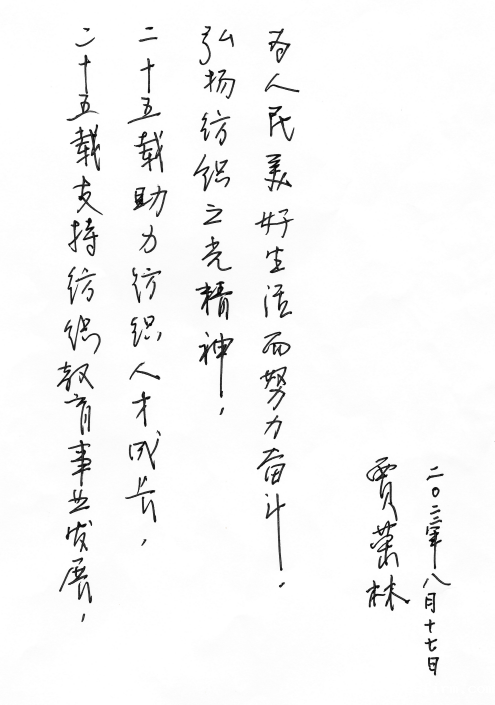 二十五载支持纺织教育事业发展，
二十五载助力纺织人才成长，
弘扬纺织之光精神，
为人民美好生活而努力奋斗.
贾荣林
二〇二三年八月十七日